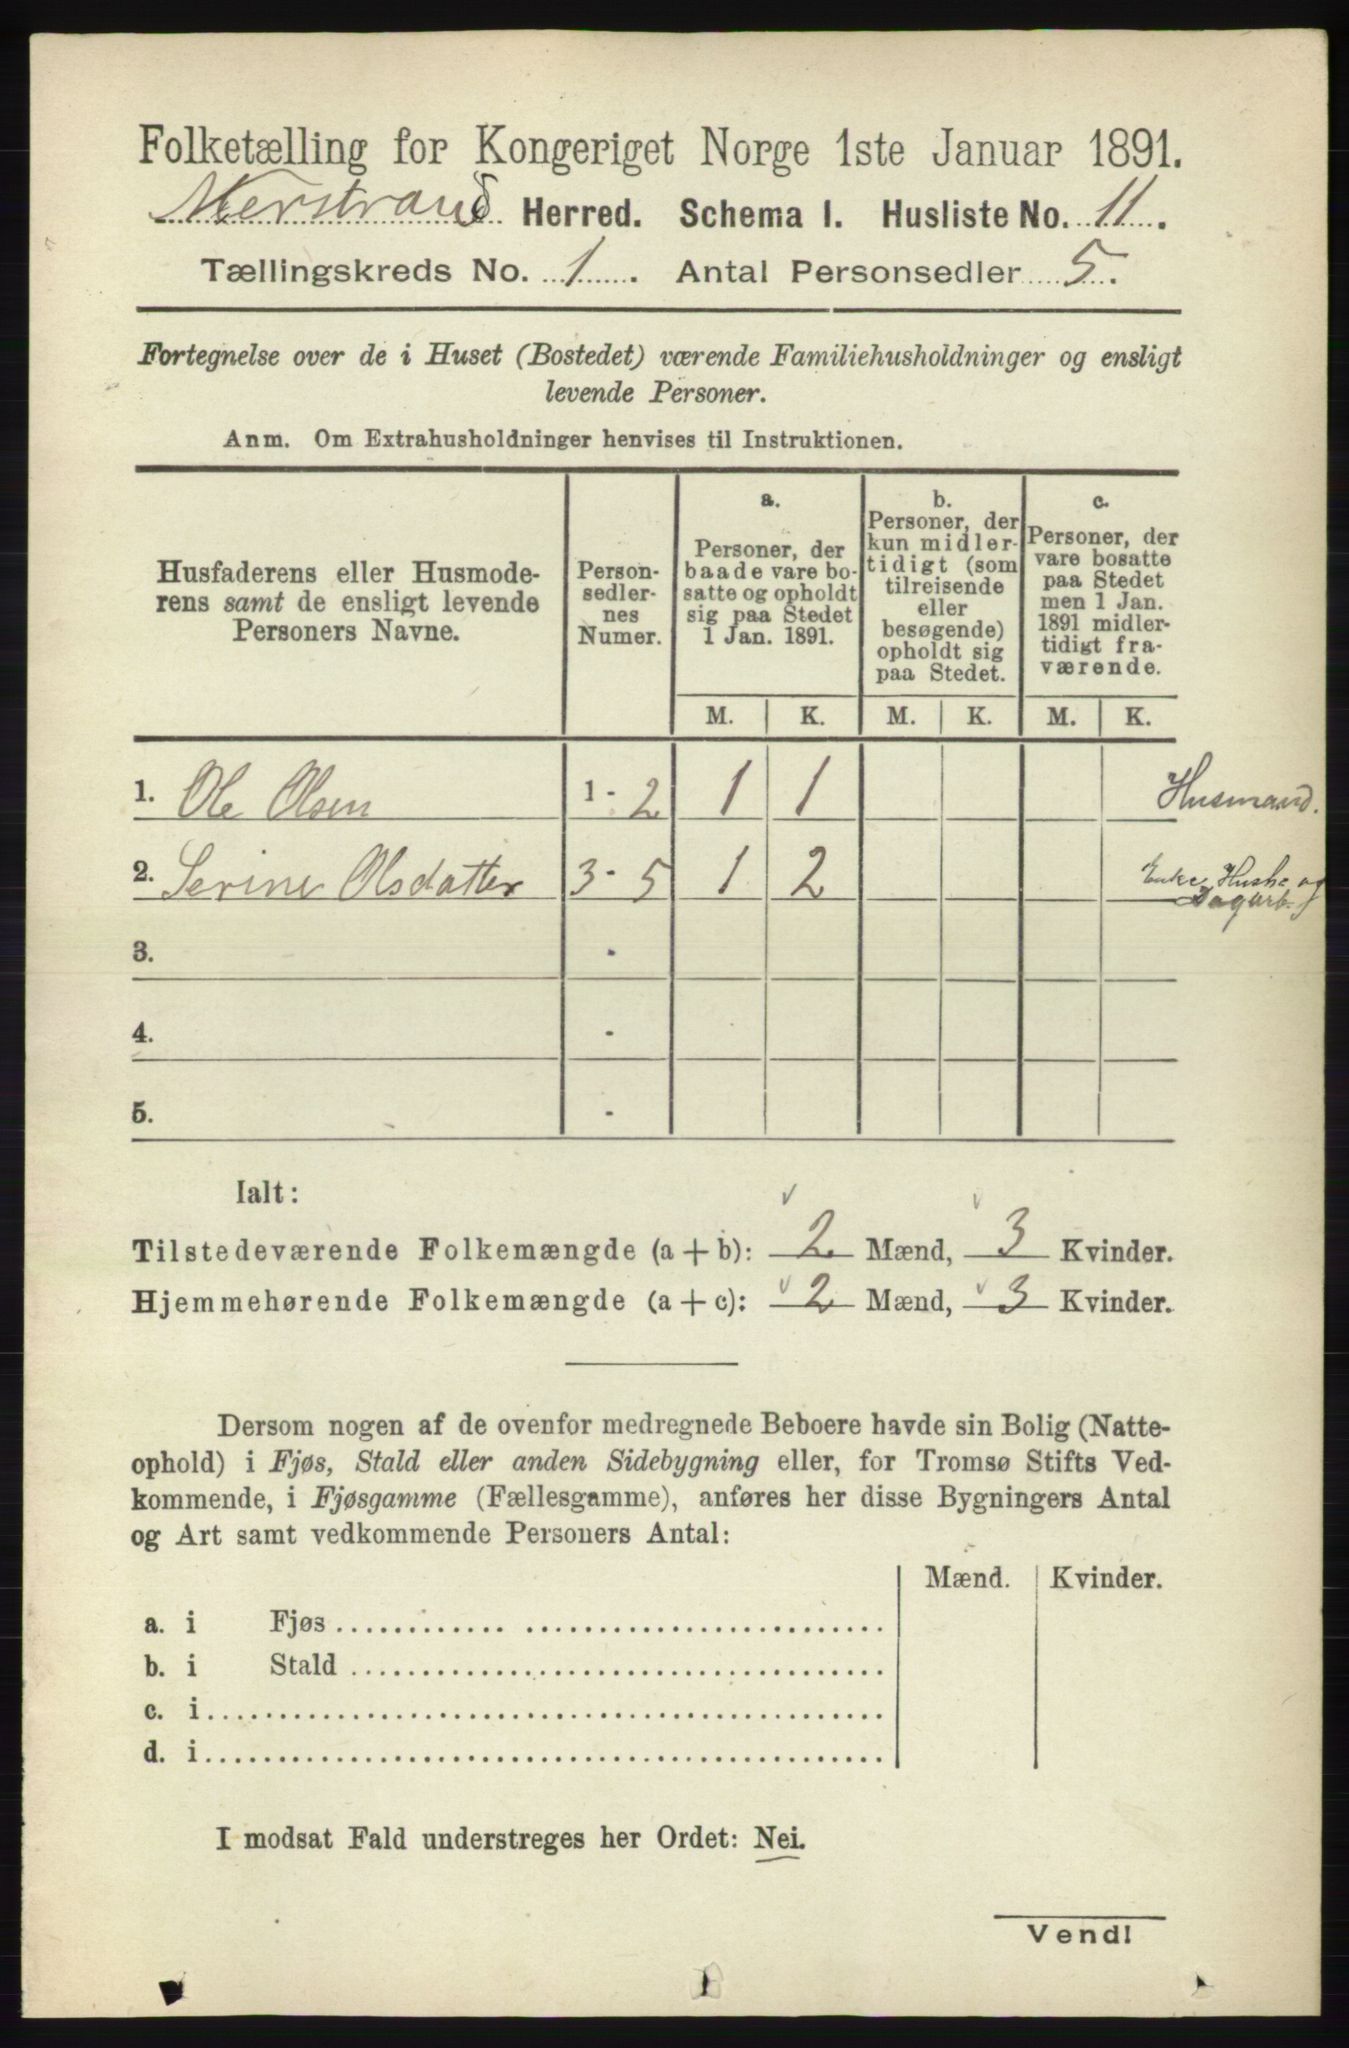 Folketælling for Kongeriget Norge 1ste Januar 1891.
Nerstrand Herred. Schema I. Husliste No. 11.
Tællingskreds No. 1. Antal Personsedler 5.
Fortegnelse over de i Huset (Bostedet) værende Familiehusholdninger og ensligt
levende Personer.
Anm. Om Extrahusholdninger henvises til Instruktionen.
Husfaderens eller Husmode-
rens samt de ensligt levende
Personers Navne.
Person-
sedler-
nes
Numer.
a.
Personer, der
baade vare bo-
satte og opholdt
sig paa Stedet
1 Jan. 1891.
b.
Personer, der
kun midler-
tidigt (som
tilreisende
eller
besøgende)
opholdt sig
paa Stedet.
c.
Personer, der
vare bosatte
paa Stedet
men 1 Jan.
1891 midler-
tidigt fra-
værende.
M. K. M. K. M. K.
1. Ole Olsen 1 - 2 1 1 Husmand.
2. Serine Olsdatter 3 - 5 1 2 Enke, Hush. og
Dagarb.
3. -
4. -
5. -
Ialt:
Tilstedeværende Folkemængde (a + b): 2 Mænd, 3 Kvinder.
Hjemmehørende Folkemængde (a + c): 2 Mænd, 3 Kvinder.
Dersom nogen af de ovenfor medregnede Beboere havde sin Bolig (Natte-
ophold) i Fjøs, Stald eller anden Sidebygning eller, for Tromsø Stifts Ved-
kommende, i Fjøsgamme (Fællesgamme), anføres her disse Bygningers Antal
og Art samt vedkommende Personers Antal:
Mænd. Kvinder.
a. i Fjøs
b. i Stald
c. i
d. i
I modsat Fald understreges her Ordet: Nei.
Vend!